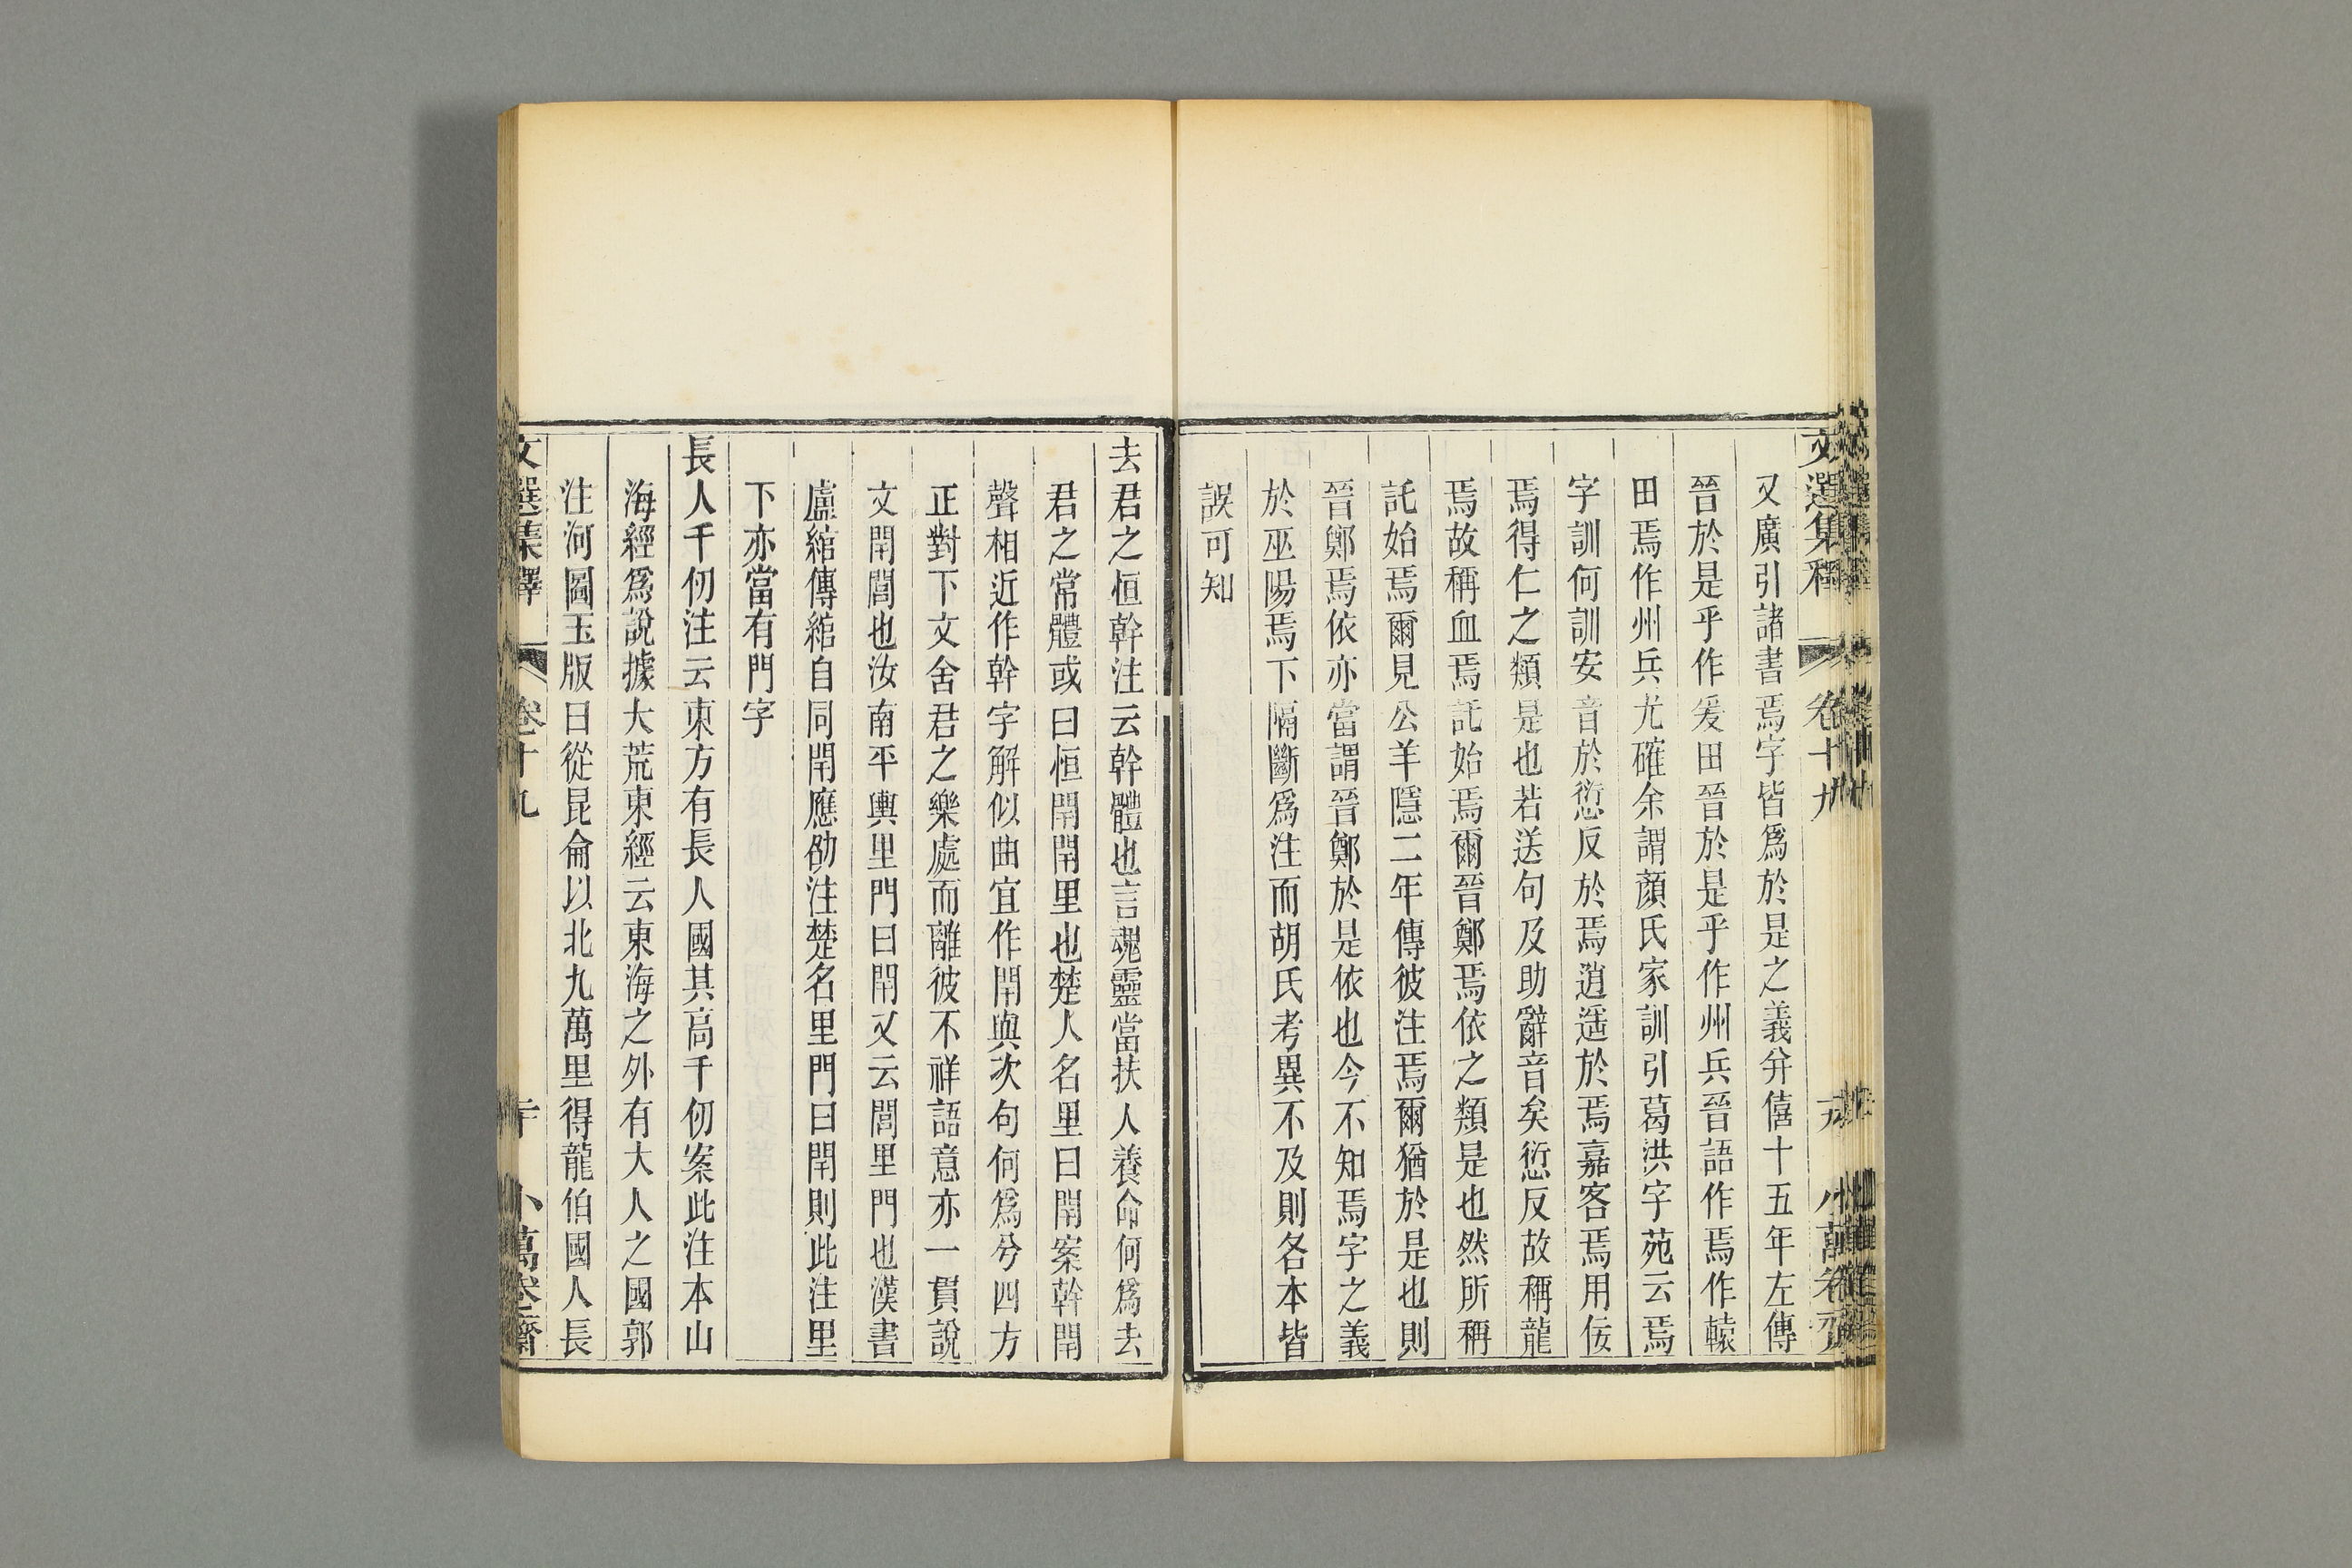 文選集釋 卷十九 小萬卷齋
又廣引諸書焉字皆爲於是之義并僖十五年左傳
晉於是乎作爰田晉於是乎作州兵晉語作焉作轅
田焉作州兵尤確余謂顏氏家訓引葛洪字苑云焉
字訓何訓安音於愆反於焉逍遥於焉嘉客焉用佞
焉得仁之類是也若送句及助辭音矣愆反故稱龍
焉故稱血焉託始焉爾晉鄭焉依之類是也然所稱
託始焉爾見公羊隱二年傳彼注焉爾猶於是也則
晉鄭焉依亦當謂晉鄭於是依也今不知焉字之義
於巫陽焉下隔斷爲注而胡氏考異不及則各本皆
誤可知
去君之恒幹注云幹體也言魂靈當扶人養命何爲去
君之常體或曰恒閈閈里也楚人名里曰閈案幹閈
聲相近作幹字解似曲宜作閈與次句何爲兮四方
正對下文舍君之樂處而離彼不祥語意亦一貫說
文閈閭也汝南平輿里門曰閈又云閭里門也漢書
盧綰傳綰自同閈應劭注楚名里門曰閈則此注里
下亦當有門字
長人千仞注云東方有長人國其高千仞案此注本山
海經爲說據大荒東經云東海之外有大人之國郭
注河圖玉版曰從昆侖以北九萬里得龍伯國人長
文選集釋 卷十九 小萬卷齋